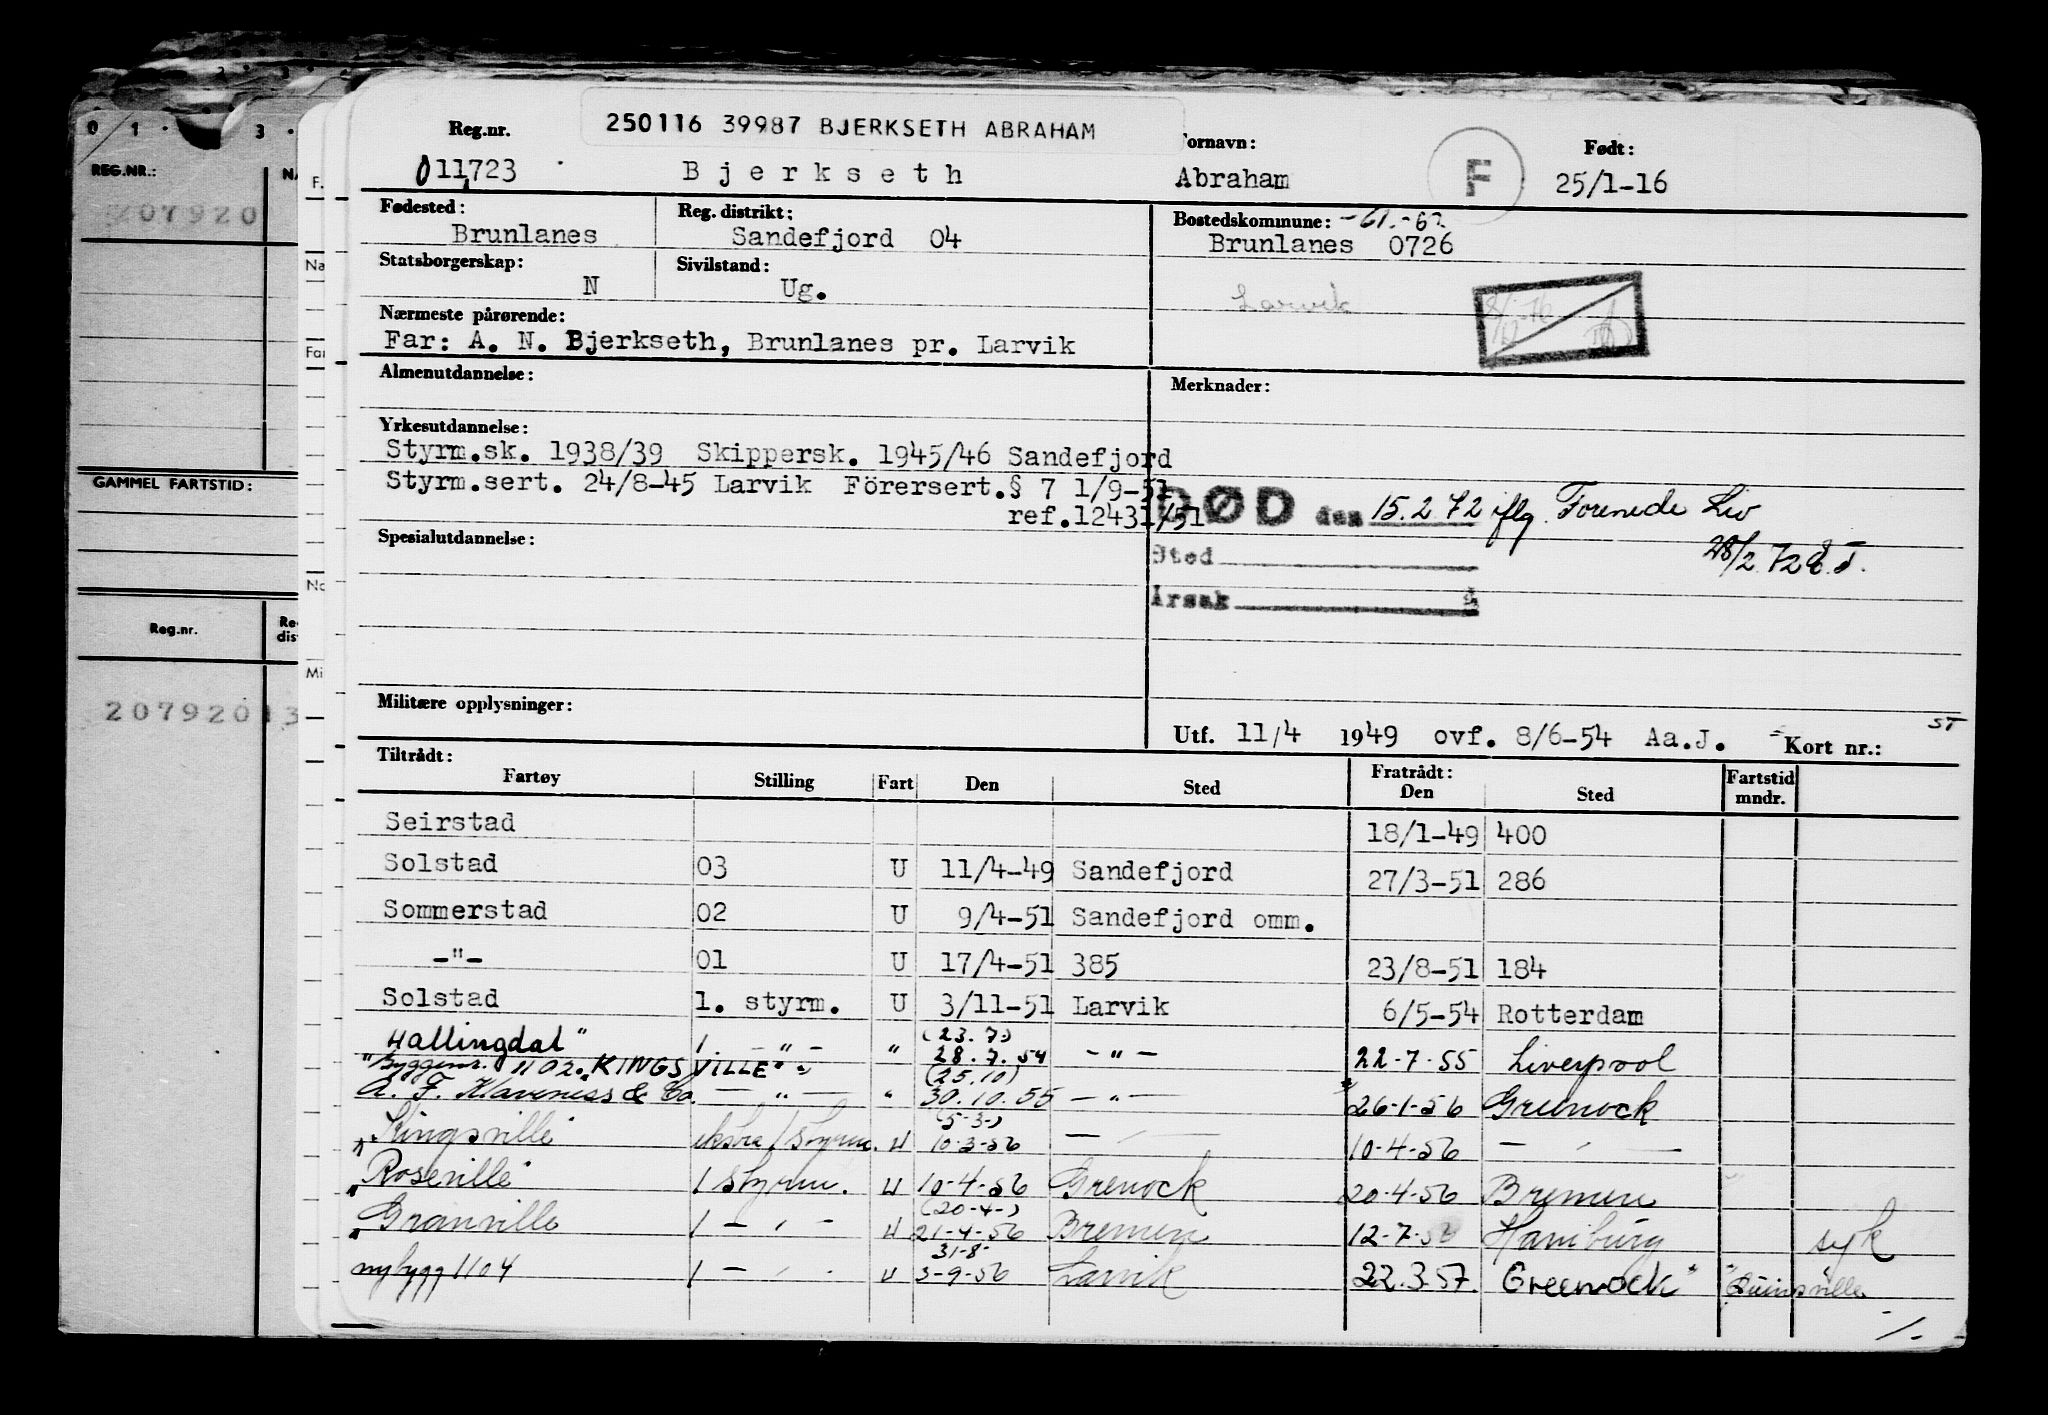 0 1 . 3 .
REG.NR.:
207920
GAMMEL FARTSTID:
Reg.nr.
207920 13
250116 39987 BJERKSETH ABRAHAM
Reg.nr. Fornavn: Født:
011723 Bjerkseth Abraham F 25/1-16
Fødested: Reg. distrikt: Bostedskommune: -61.-62.
Brunlanes Sandefjord 04 Brunlanes 0726
Statsborgerskap: Sivilstand:
N Ug. Larvik
Nærmeste pårørende:
Far: A. N. Bjerkseth, Brunlanes pr. Larvik
Almenutdannelse: Merknader:
Yrkesutdannelse:
Styrm.sk. 1938/39 Skippersk. 1945/46 Sandefjord
Styrm.sert. 24/8-45 Larvik Förersert.§ 7 1/9-51
ref.12431/51
DØD den 15.2.72 iflg. Forenede Liv
Spesialutdannelse: Sted 28/2.72
Årsak
Militære opplysninger:
Utf. 11/4 1949 ovf. 8/6-54 Aa.J. Kort nr.: ST
Tiltrådt: Fratrådt: Fartstid
Fartøy Stilling Fart Den Sted Den Sted mndr.
Seirstad 18/1-49 400
Solstad 03 U 11/4-49 Sandefjord 27/3-51 286
Sommerstad 02 U 9/4-51 Sandefjord omm.
-"- 01 U 17/4-51 385 23/8-51 184
Solstad 1. styrm. U 3/11-51 Larvik 6/5-54 Rotterdam
(23.7.)
Hallingdal" 1. - " - " 28.7.54 - " - 22-7-55 Liverpool
"Byggenr. 1102 "KINGSVILLE" (25.10)
A. F. Klaveness & Co. - " - " 30.10.55 - " - 26-1-56 Greenock
(5-3-)
"Kingsville" ekstra 1 styrm. U 10-3-56 - " - 10-4-56 - " -
"Roseville" 1 styrm. U 10-4-56 Grenock 20-4-56 Bremen
(20-4-)
"Granville 1 - " - U 21-4-56 Bremen 12-7-56 Hamburg syk
31-8-
nybygg 1104 1 - " - U 3-9-56 Larvik 22.3.57. Greenock" "Quinsville